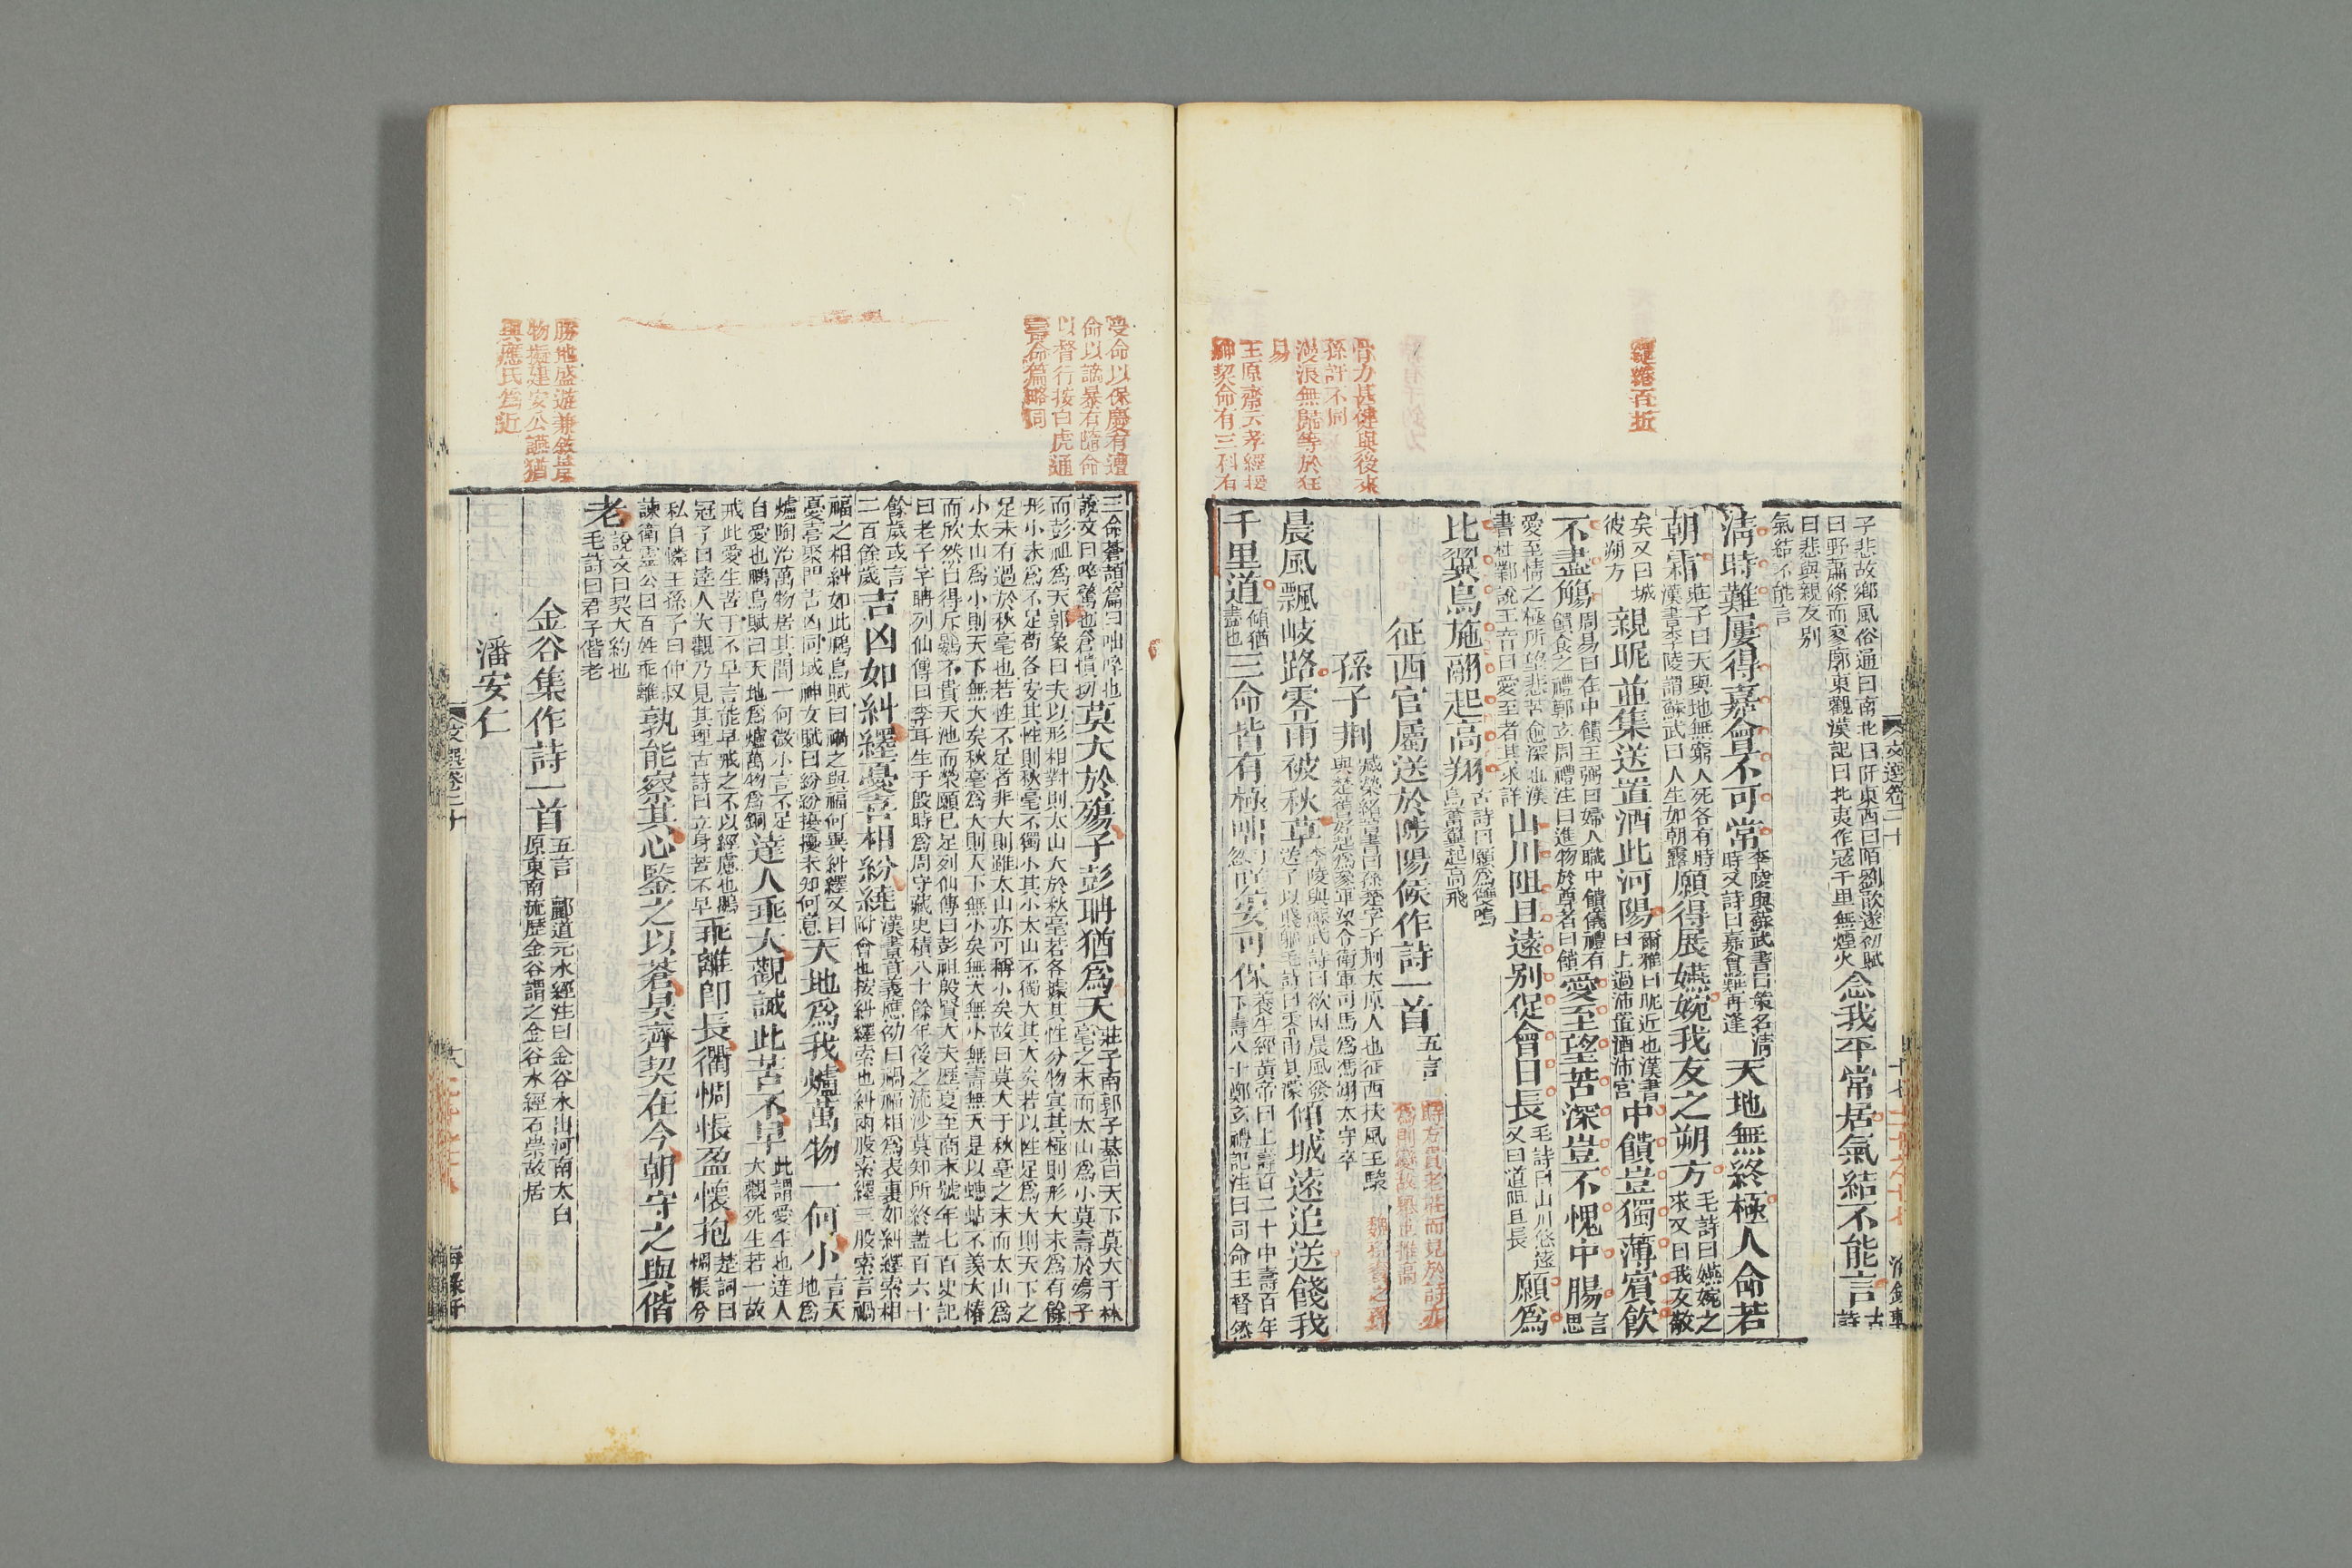 子悲故鄉風俗通曰南北曰阡東西曰陌劉歆遂初賦
曰野蕭條而寥廓東觀漢記曰北夷作寇千里無煙火
念我平常居氣結不能言
古
詩
曰悲與親友别
氣結不能言
清時難屢得嘉會不可常
李陵與蘇武書曰策名清
時又詩曰嘉會難再逢
天地無終極人命若
朝霜
莊子曰天與地無窮人死各有時
漢書李陵謂蘇武曰人生如朝露
願得展嬿婉我友之朔方
毛詩曰嬿婉之
求又曰我友敬
矣又曰城
彼朔方
親昵並集送置酒此河陽
爾雅曰昵近也漢書
曰上過沛置酒沛宫
中饋豈獨薄賓飲
不盡觴
周易曰在中饋王弼曰婦人職中饋儀禮有
饋食之禮鄭玄周禮注曰進物於尊者曰饋
愛至望苦深豈不愧中腸
言
思
愛至情之極所望悲苦愈深也漢
書杜鄴說王音曰愛至者其求詳
山川阻且遠别促會日長
毛詩曰山川悠遠
又曰道阻且長
願爲
比翼鳥施翮起高翔
古詩曰願爲雙鳴
鳥奮翼起高飛
征西官屬送於陟陽候作詩一首
五言
孫子荆
臧榮緒晉書曰孫楚字子荆太原人也征西扶風王駿
與楚舊好起爲參軍梁令衛軍司馬爲馮翊太守卒
晨風飄岐路零雨被秋草
李陵與蘇武詩曰欲因晨風發
送子以賤軀毛詩曰零雨其濛
傾城遠追送餞我
千里道
傾猶
盡也
三命皆有極咄
安可保
養生經黃帝曰上壽百二十中壽百年
下壽八十鄭玄禮記注曰司命主督察
紆迴百折
骨力甚健與後來
孫許不同
漫浪無歸等於狂
易
王原齋云孝經援
神契命有三科有
文選卷二十
十七
三命蒼頡篇曰咄啐也
說文曰啐驚也倉憒切
莫大於殤子彭聃猶爲夭
莊子南郭子綦曰天下莫大于秋
毫之末而太山爲小莫壽於殤子
而彭祖爲夭郭象曰夫以形相對則太山大於秋毫若各據其性分物宜其極則形大未爲有餘
形小未爲不足苟各安其性則秋毫不獨小其小太山不獨大其大矣若以性足爲大則天下之
足未有過於秋毫也若性不足者非大則雖太山亦可稱小矣故曰莫大于秋毫之末而太山爲
小太山爲小則天下無大矣秋毫爲大則天下無小矣無大無小無壽無夭是以蟪蛄不羨大椿
而欣然自得斥鷃不貴天池而榮願已足列仙傳曰彭祖殷賢大夫歷夏至商末號年七百史記
曰老子字聃列仙傳曰李耳生于殷時爲周守藏史積八十餘年後之流沙莫知所終蓋百六十
餘歲或言
二百餘歲
吉凶如糾纆憂喜相紛繞
漢書音義應劭曰禍福相爲表裏如糾纆索相
附會也按糾纆索也糾兩股索纆三股索言禍
福之相糾如此鵩鳥賦曰禍之與福何異糾纆又曰
憂喜聚門吉凶同域神女賦曰紛紛擾擾未知何意
天地爲我爐萬物一何小
言天
地爲
爐陶冶萬物居其間一何微小言不足
自愛也鵩鳥賦曰天地爲爐萬物爲銅
達人垂大觀誡此苦不早
此謂愛生也達人
大觀死生若一故
戒此愛生苦于不早言能早戒之不以經慮也鶡
冠子曰達人大觀乃見其理古詩曰立身苦不早
乖離即長衢惆悵盈懷抱
楚詞曰
惆悵兮
私自憐王孫子曰仲叔
諫衛靈公曰百姓乖離
孰能察其心鑒之以蒼昊齊契在今朝守之與偕
老
說文曰契大約也
毛詩曰君子偕老
金谷集作詩一首
五言 酈道元水經注曰金谷水出河南太白
原東南流歷金谷謂之金谷水經石崇故居
潘安仁
受命以保慶有遭
命以謫暴有隨命
以督行按白虎通
壽命篇略同
勝地盛遊兼敘景
物擬建安公讌猶
與應氏爲近
文選卷二十